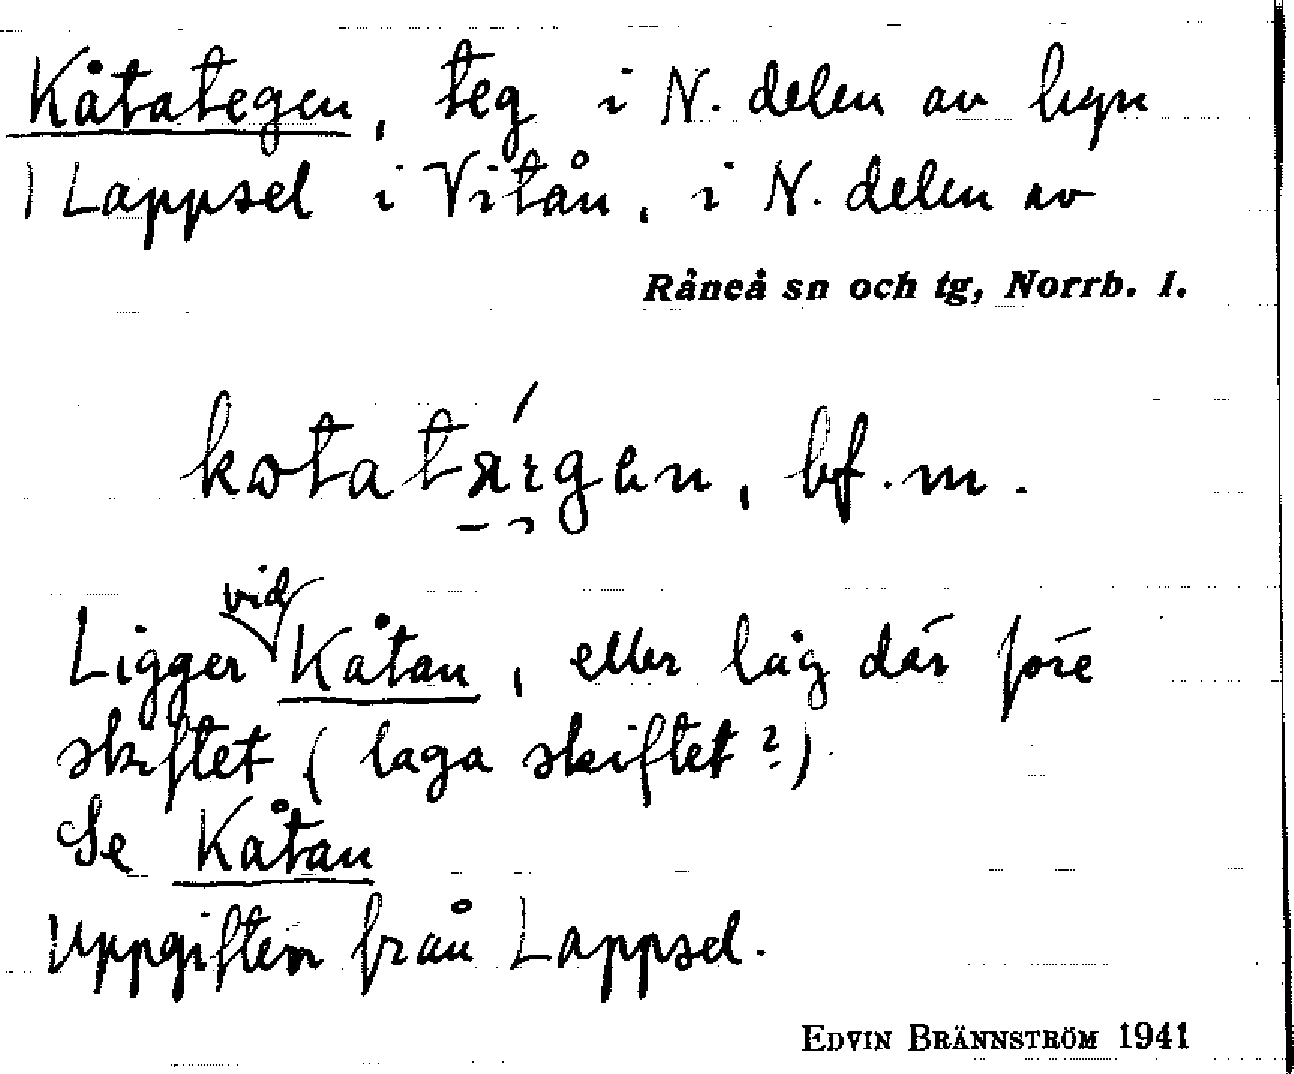 Kåtategen, teg i N. delen av byn
Lappsel i Vitån, i N. delen av
Råneå sn och tg, Norrb. l.
bf. m.
Ligger vid Kåtan, eller låg där före
skiftet (laga skiftet?)
Se Kåtan
Uppgiften från Lappsel.
EDVIN BRÄNNSTRÖM 1941